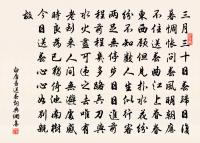 三月三十日春歸日復
暮惆悵問春風明朝應
不住送春曲江上眷眷
東西顧但見撲水花紛
紛不知數人生似行客
兩足無停步日日進前
程前程幾多路兵刃與
水火盡可違之去唯有
老到來人間無避處感
時良為已獨倚池南樹
今日送春心心如別親
故
白居易送春